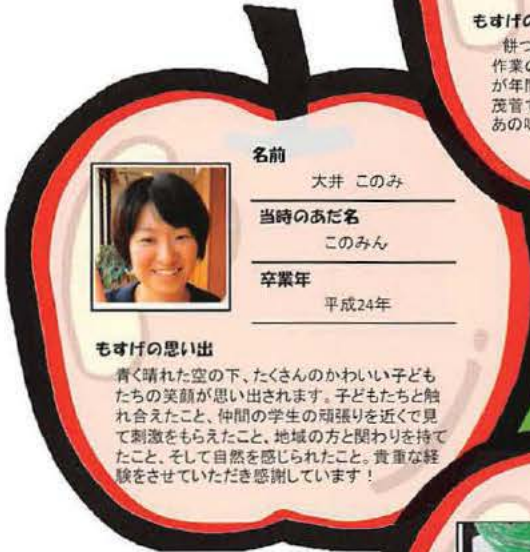 もすげの
餅つ
作業の
が年間
茂菅で
あの味
名前
大井 このみ
当時のあだ名
このみん
卒業年
平成24年
もすげの思い出
青く晴れた空の下、たくさんのかわいい子ども
たちの笑顔が思い出されます。子どもたちと触
れ合えたこと、仲間の学生の頑張りを近くで見
て刺激をもらえたこと、地域の方と関わりを持て
たこと、そして自然を感じられたこと。貴重な経
験をさせていただき感謝しています！